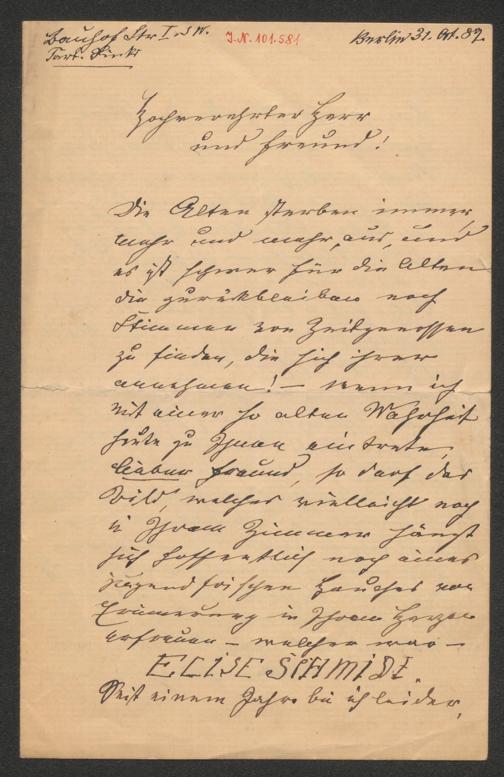 Bauhof Str I. SW. J.N. 101.581 Berlin 31. Okt. 89.
Part. links
Hochverehrter Herr
und Freund!
Die Alten sterben immer
mehr und mehr aus, und
es ist schwer für die Alten
die zurückbleiben noch
Stimmen von Zeitgenossen
zu finden, die sich ihrer
annehmen! – Wenn ich
mit einer so alten Wahrheit
heute zu Ihnen eintrete,
lieber Freund, so darf das
Bild, welches vielleicht noch
in Ihrem Zimmer hängt
sich hoffentlich noch eines
jugendfrischen Hauches von
Erinnerung in Ihrem Herzen
erfreuen – welches war –
ELISE SCHMIDT.
Seit einem Jahre bin ich leider,